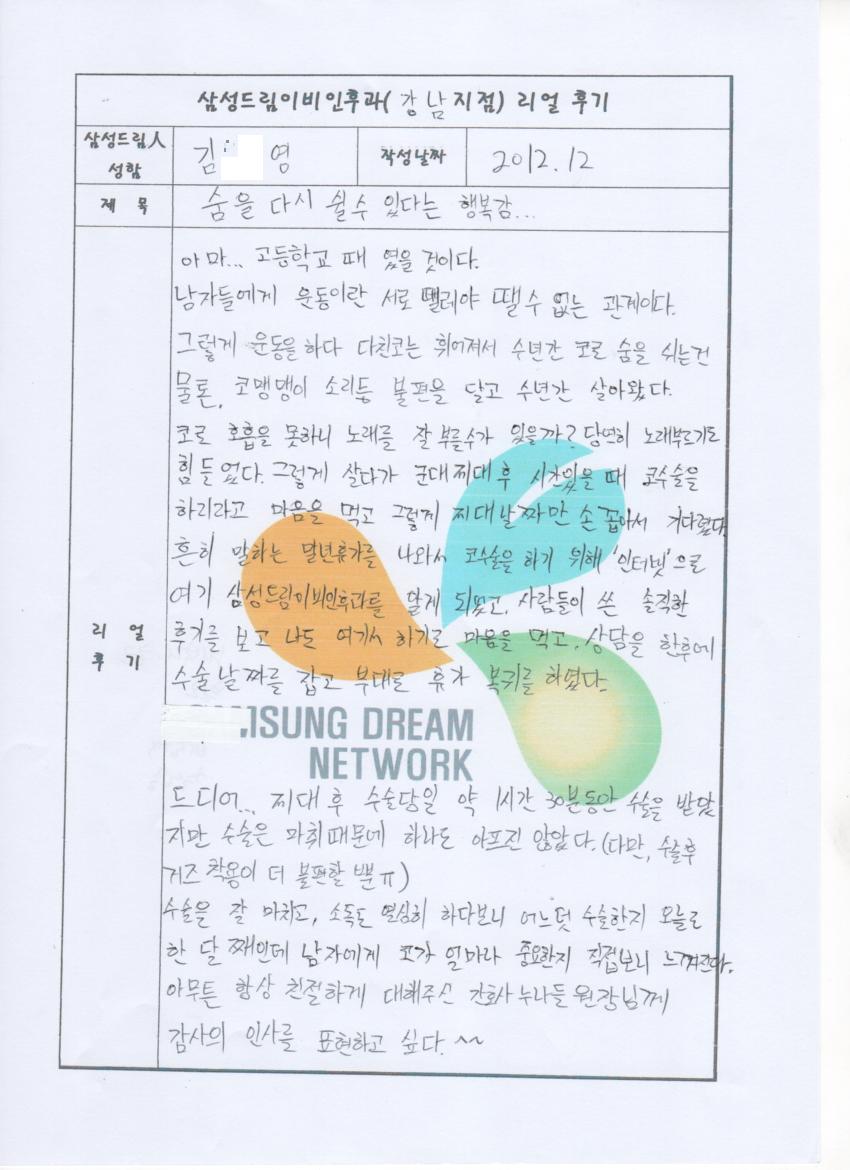 삼성드림이비인후과(강남지점) 리얼 후기
삼성드림人 성함
김 영
작성날짜
2012.12
제 목
숨을 다시 쉴수 있다는 행복감...
리 얼
후 기
아마... 고등학교 때 였을 것이다.
남자들에게 운동이란 서로 뗄레야 뗄수 없는 관계이다.
그렇게 운동을 하다 다친코는 휘어져서 수년간 코로 숨을 쉬는건
물론, 코맹맹이 소리등 불편을 달고 수년간 살아왔다.
코로 호흡을 못하니 노래를 잘 부를수가 있을까? 당연히 노래부르기도
힘들었다. 그렇게 살다가 군대 제대 후 시간있을 때 코수술을
하리라고 마음을 먹고 그렇게 제대날짜만 손꼽아서 기다렸다.
흔히 말하는 말년휴가를 나와서 코수술을 하기 위해 '인터넷'으로
여기 삼성드림이비인후과를 알게 되었고, 사람들이 쓴 솔직한
후기를 보고 나도 여기서 하기로 마음을 먹고, 상담을 한후에
수술날짜를 잡고 부대로 휴가 복귀를 하였다.
SUNG DREAM
NETWORK
드디어... 제대 후 수술당일 약 1시간 30분동안 수술을 받았
지만 수술은 마취때문에 하나도 아프진 않았다. (다만, 수술후
거즈 착용이 더 불편할 뿐ㅠ)
수술을 잘 마치고, 소독도 열심히 하다보니 어느덧 수술한지 오늘로
한 달 째인데 남자에게 코가 얼마나 중요한지 직접보니 느껴진다.
아무튼 항상 친절하게 대해주신 간호사 누나들 원장님께
감사의 인사를 표현하고 싶다. ^^